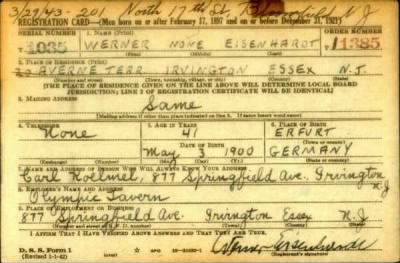 3/29/43-201 North 17th St, Bloomfield N J
REGISTRATION CARD—(Men born on or after February 17, 1897 and on or before December 31, 1921)
SERIAL NUMBER 1. NAME (Print) ORDER NUMBER
1035 WERNER NONE EISENHARDT 11385
(First) (Middle) (Last)
2. PLACE OF RESIDENCE (Print)
AVERNE TERR IRVINGTON ESSEX N.J.
(Number and street) (Town, township, village, or city) (County) (State)
[THE PLACE OF RESIDENCE GIVEN ON THE LINE ABOVE WILL DETERMINE LOCAL BOARD
JURISDICTION; LINE 2 OF REGISTRATION CERTIFICATE WILL BE IDENTICAL]
3. MAILING ADDRESS
Same
[Mailing address if other than place indicated on line 2. If same insert word same]
4. TELEPHONE 5. AGE IN YEARS 6. PLACE OF BIRTH
None 41 ERFURT
DATE OF BIRTH (Town or county)
May 3 1900 GERMANY
(Exchange) (Number) (Mo.) (Day) (Yr.) (State or country)
7. NAME AND ADDRESS OF PERSON WHO WILL ALWAYS KNOW YOUR ADDRESS
Carl Hoelmel, 877 Springfield Ave. Irvington N.J
8. EMPLOYER'S NAME AND ADDRESS
Olympic Tavern
9. PLACE OF EMPLOYMENT OR BUSINESS
877 Springfield Ave. Irvington Essex N.J
(Number and street or R. F. D. number) (Town) (County) (State)
I AFFIRM THAT I HAVE VERIFIED ABOVE ANSWERS AND THAT THEY ARE TRUE.
D. S. S. Form 1
(Revised 1-1-42) (over) Werner Eisenhardt
(Registrant's signature)